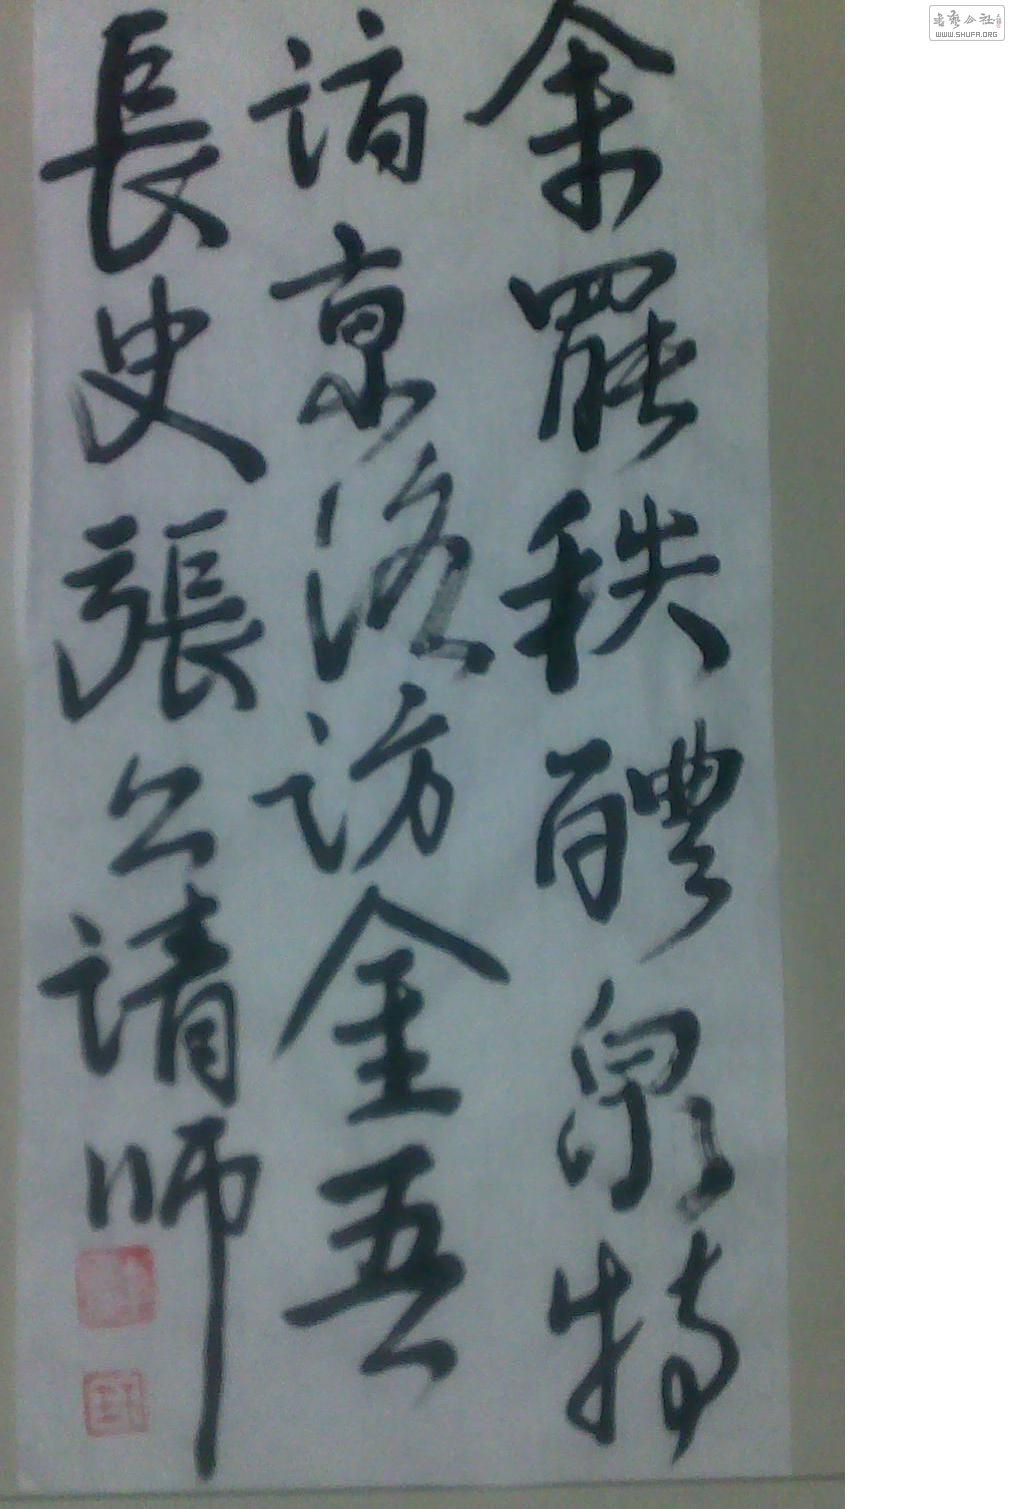 余罷秩醴泉特
詣京洛訪金吾
長史張公請師
WWW.SHUFA.ORG